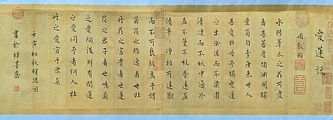 愛蓮說
周敦頤
水陸草木之花可愛
者甚蕃晉陶淵明獨
愛菊自李唐來世人
甚愛牡丹予獨愛蓮
之出淤泥而不染濯
清漣而不妖中通外
直不蔓不枝香遠益
清亭亭淨植可遠觀
而不可褻翫焉予謂
菊花之隱逸者也牡
丹花之富貴者也蓮
花之君子者也噫菊
之愛陶後鮮有聞蓮
之愛同予者何人牡
丹之愛宜乎眾矣
壬寅初秋